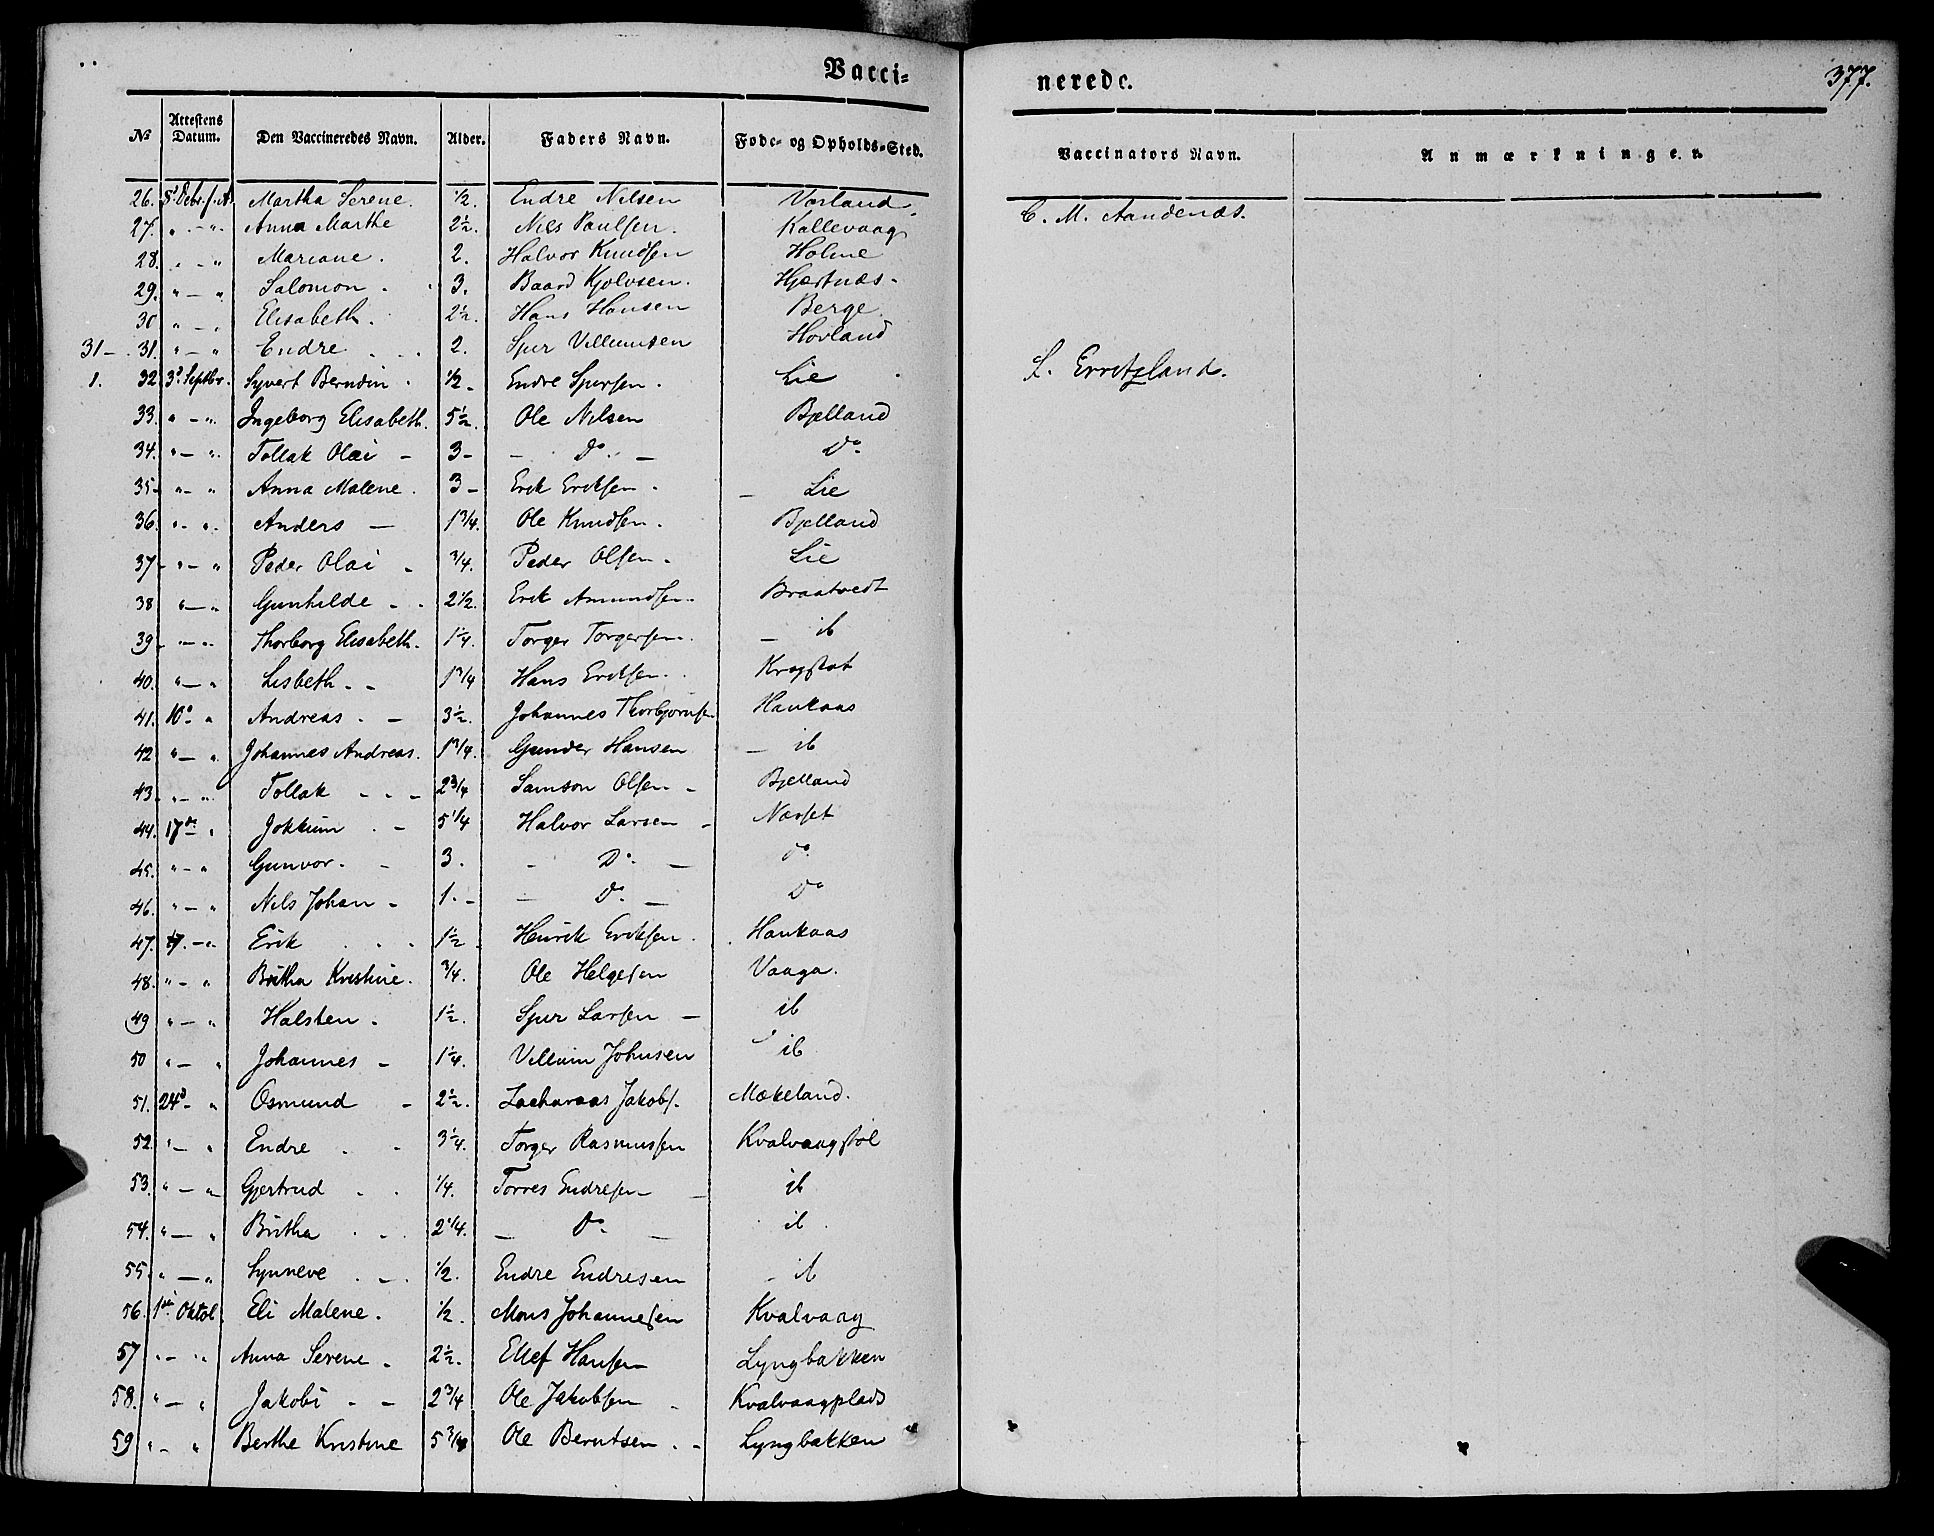 Vacci=
nerede.
377.
№ Attestens Datum. Den Vaccineredes Navn. Alder. Faders Navn. Føde- og Opholds-Sted. Vaccinators Navn. Anmærkninger.
26. Martha Serene. 1/2. Endre Nilsen Vorland. C. M. Aandenæs.
27. " - ". Anna Marthe 2 1/2. Niels Paulsen. Kallevaag
28. " - " Mariane. 2. Halvor Knudsen Holme
29. " - " Salomon. 3. Baard Kjolvsen. Hjertnæs.
30 " - " Elisabeth. 2 1/2. Hans Hansen Berge
31 - 31. " - " Endre. 2. Sjur Villumsen Hovland
1. 32 3d Septbr. Syvert Berndin. 1/2. Endre Sjursen. Lie L. Erretzland.
33. " - ". Ingeborg Elisabeth. 5 1/2. Ole Nilsen Bjelland
34. " - ". Tollak Olai - 3 - - Do. - Do.
35 - " - " Anna Malene. 3 - Erik Eriksen. - Lie
36. " - ". Anders - 1 3/4. Ole Knudsen. Bjelland
37 - " - " Peder Olai - 3/4. Peder Olsen. Lie
38 " - " Gunhilde - . 2 1/2. Erik Amundsen. Braatvedt
39 " - " Thorborg Elisabeth. 1 1/4. Torger Torgersen. - ib
40. " - " Lisbeth. - 1 3/4 Hans Eriksen. Kragstat
41. 10de " Andreas. - 3 1/2. Johannes Thorbjørnsen Haukaas
42 " - ". Johannes Andreas. 1 3/4. Gunder Hansen - ib
43. " - " Tollak - - - 2 3/4 Samson Olsen - Bjelland
44. 17de " Jokkum. - 5 1/4 Halvor Larsen - Norset
45. " - " Gunvor. - 3. - Do. - Do.
46. " - " Nils Johan - 1. - - Do. - Do
47. 17. - ". Erik . . . 1 1/2. Henrik Eriksen. Haukaas
48. " - " Britha Kristine. 3/4. Ole Helgesen Vaaga.
49 " - " Halsten. 1 1/2. Sjur Larsen - ib
50 " - " Johannes - 1 1/4. Villum Johnsen ib
51. 24d - " Osmund - 2 1/2. Zacharaas Jakobs. Mækeland.
52. " - " Endre . . 3 1/4. Torger Rasmussen Kvalvaagstøl
53. " - " Gjertrud . . 1/4. Torres Endresen - ib
54. " - " Britha . - . 2 1/4. - Do - ib.
55. " - " Synneve . - . 1/2. Endre Endresen - ib
56. 1ste Oktob. Eli Malene. 1/2. Mons Johannesen Kvalvaag
57 " - " Anna Serene - 2 1/2. Ellef Hansen Lyngbakken
58. " - " Jakobi - - 2 3/4 Ole Jakobsen - Kvalvaagplads
59 " - " Berthe Kristine 5 3/4 Ole Berntsen. - Lyngbakken